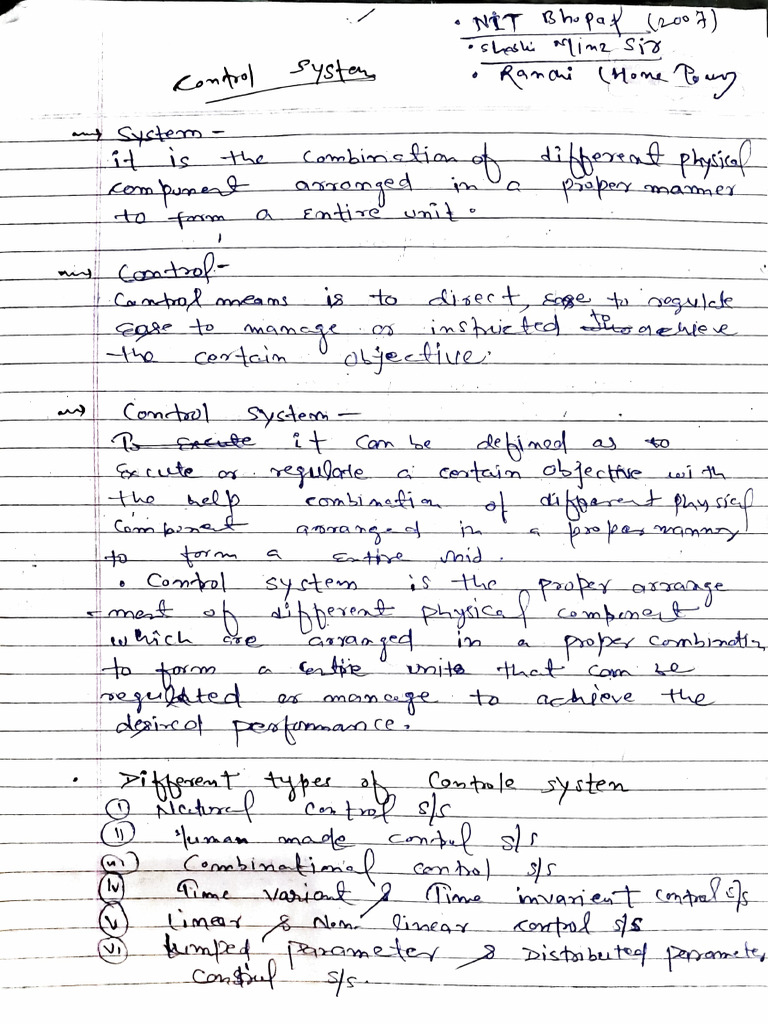 • NIT Bhopal (2007)
• Shashi Minz Sir
• Ranchi (Home Town)
Control System
System -
it is the combination of different physical
component arranged in a proper manner
to form a Entire unit.
Control -
Control means is to direct, to regulate
to manage or instructed to achieve
the certain objective.
Control system -
it can be defined as to
Excute or regulate a certain objective with
the help combination of different physical
component arranged in a proper manner
to form a Entire unid.
• Control system is the proper arrange
- ment of different physical component
which are arranged in a proper combination
to form a entire units that can be
regulated or manage to achieve the
desired performance.
• Different types of Controle system
(i) Natural control s/s
(ii) Human made control s/s
(iii) Combinational control s/s
(iv) Time variant & Time invarient control s/s
(v) Linear & Non-linear control s/s
(vi) Lumped parameter & Distributed parameter
control s/s.